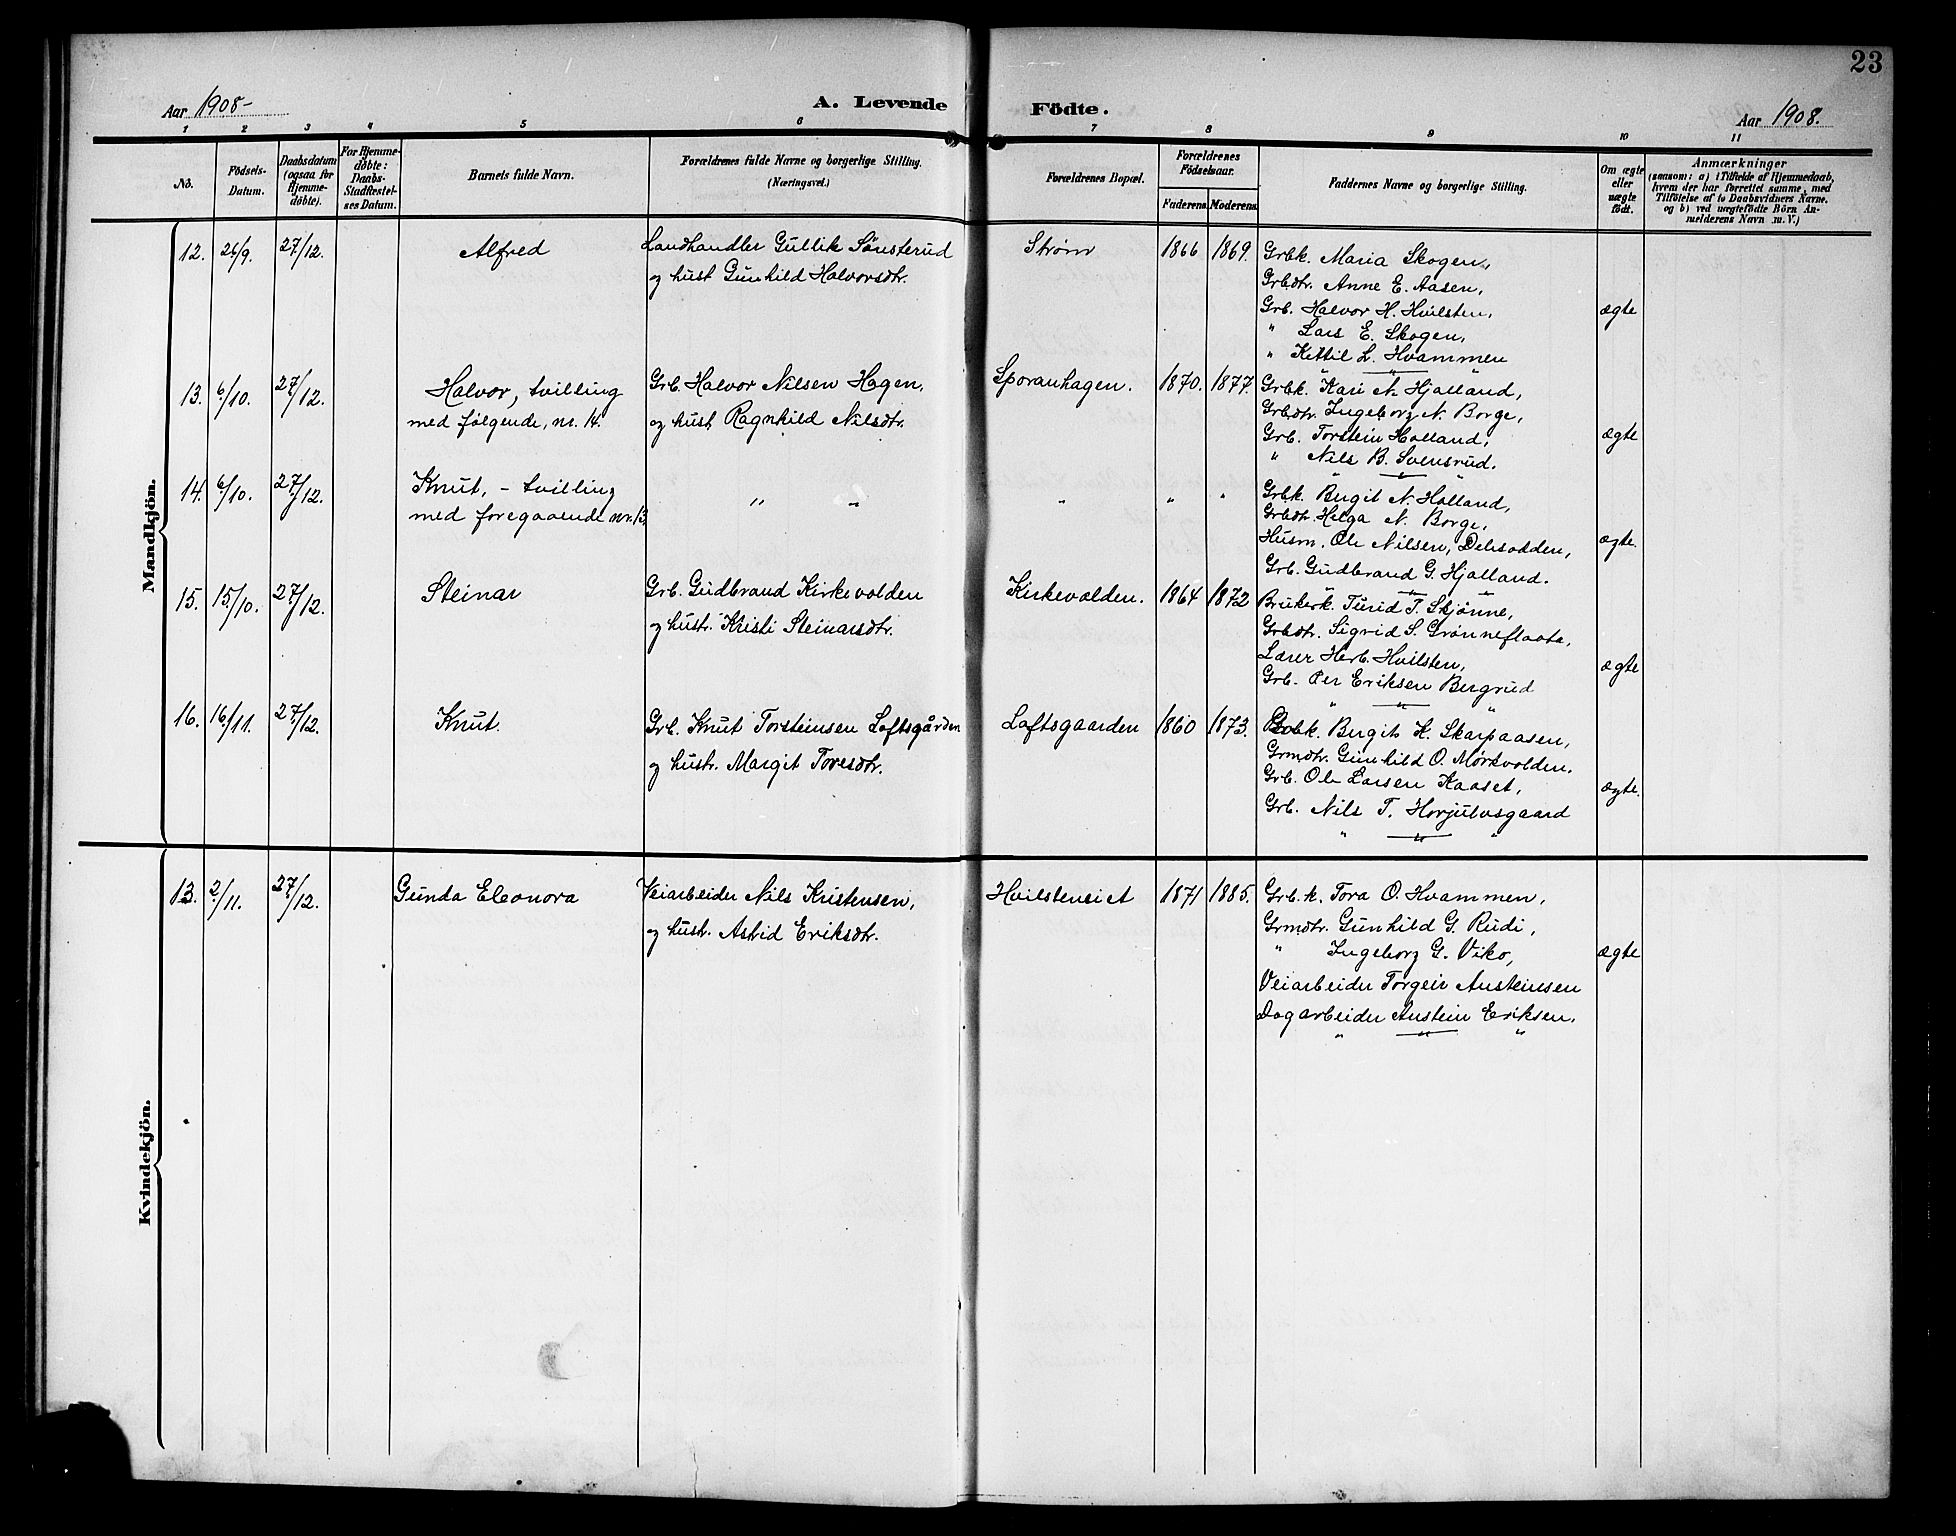 23
Aar 1908-
A. Levende
Födte.
Aar 1908.
1 2 3 4 5 6 7 8 9 10 11
No.
Födsels-
Datum.
Daabsdatum
(ogsaa for
Hjemme-
döbte).
For Hjemme-
döbte:
Daabs-
Stadfæstel-
ses Datum.
Barnets fulde Navn.
Forældrenes fulde Navne og borgerlige Stilling.
(Næringsvei.)
Forældrenes Bopæl.
Forældrenes
Födselsaar.
Faderens.
Moderens.
Faddernes Navne og borgerlige Stilling.
Om ægte
eller
uægte
födt.
Anmærkninger
(saasom: a) i Tilfælde af Hjemmedaab,
hvem der har forrettet samme, med
Tilföielse af to Daabsvidners Navne,
og b) ved uægtefödte Börn An-
melderens Navn m. V.)
Mandkjön.
12. 26/9. 27/12. Alfred
Landhandler Gullik Sønsterud
og hust Gunhild Halvorsdtr.
Strøm 1866 1869.
Grbk. Maria Skogen,
Grbdtr. Anne E. Aasen,
Grb. Halvor H. Hvilsten,
" Lars E. Skogen,
" Kittil L. Hvammen
ægte
13. 6/10. 27/12.
Halvor, tvilling
med følgende, nr. 14.
Grb. Halvor Nilsen Hagen.
og hust Ragnhild Nilsdtr.
Sporanhagen. 1870. 1877.
Grbk. Kari N. Hjalland,
Grbdtr. Ingeborg N. Borge,
Grb. Torstein Holland,
" Nils B. Svensrud.
ægte
14. 6/10. 27/12.
Knut, - tvilling
med foregaaende nr. 13.
" " " " "
Grbk. Bergit N. Holland,
Grbdtr. Helga N. Borge,
Husm. Ole Nilsen, Delisodden,
Grb. Gudbrand G. Hjalland.
ægte.
15. 15/10. 27/12. Steinar
Grb. Gudbrand Kirkevolden
og hustr. Kristi Steinarsdtr.
Kirkevolden. 1864 1872
Brukerk. Turid T. Skjønne,
Grbdtr. Sigrid S. Grønneflaata,
Lærer Herb. Hvilsten,
Grb. Per Eriksen Bergrud
ægte
16. 16/11. 27/12. Knut.
Grb. Knut Torsteinsen Loftsgården
og hustr. Margit Toresdtr.
Loftsgaarden 1860 1873.
Birgit K. Skarpaasen,
Grmdtr. Gunhild O. Mørkvolden.
Grb. Ole Larsen Kaaset,
Grb. Nils T. Horjulvsgaard
ægte.
Kvindekjön.
13. 2/11. 27/12. Gunda Eleonora
Veiarbeider Nils Kristensen,
og hustr. Astrid Eriksdtr.
Hvilsteneiet 1871 1885.
Grb.k. Tora O. Hvammen,
Grmdtr. Gunhild G. Rudi,
" Ingeborg G. Viko,
Veiarbeider Torgeir Austeinsen
Dagarbeider Austein Eriksen.
ægte